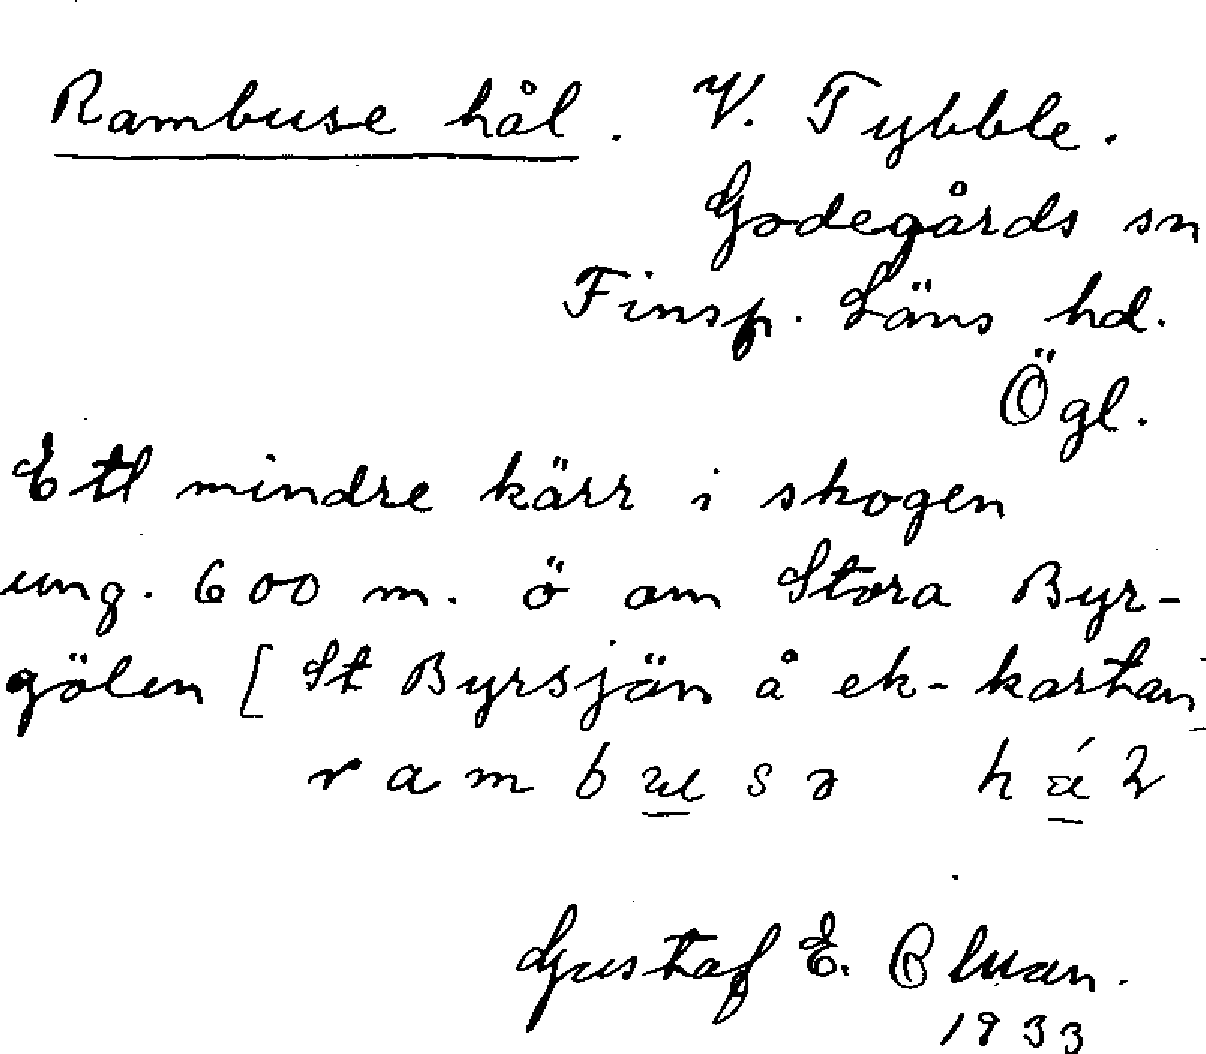 Rambuse hål. V. Tybble.
Godegårds sn
Finsp. Läns hd.
Ögl.
Ett mindre kärr i skogen
ung. 600 m. ö om Stora Byr-
gölen [St Byrsjön å ek-kartan]
rambusə
Gustaf E.
1933